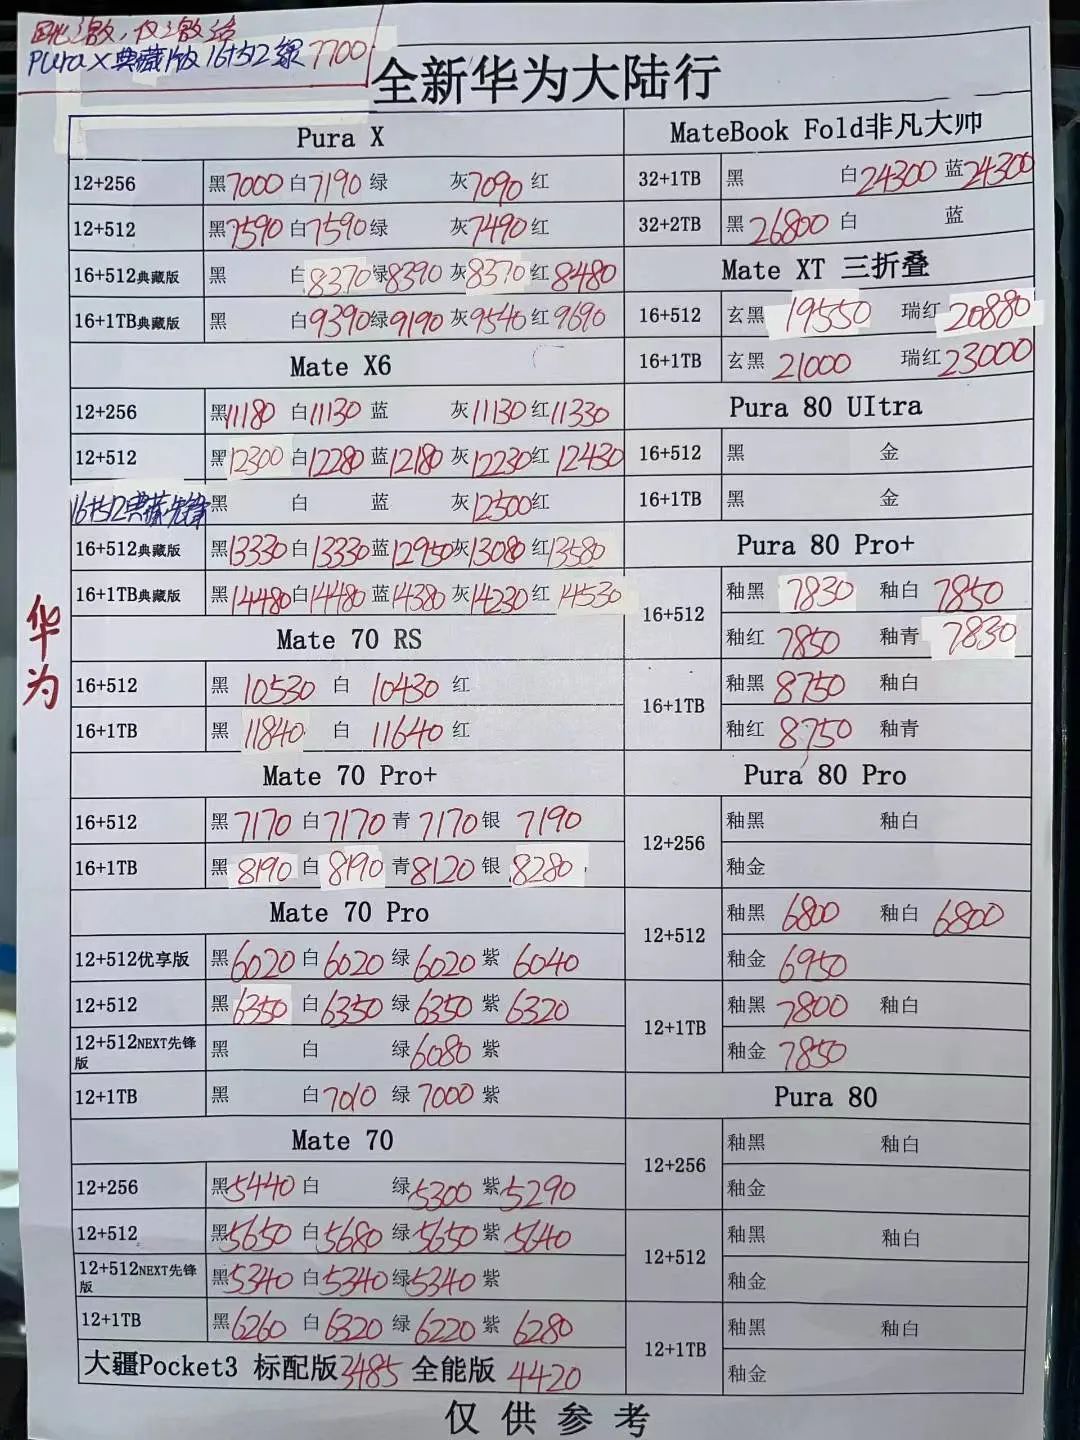 跳激,仅激活
Pura X典藏版16+512绿7700
全新华为大陆行
华为
Pura X
12+256 黑7000 白7190 绿 灰7090 红
12+512 黑7590 白7590 绿 灰7490 红
16+512典藏版 黑 白8370 绿8390 灰8370 红8480
16+1TB典藏版 黑 白9390 绿9190 灰9540 红9690
Mate X6
12+256 黑11180 白11130 蓝 灰11130 红11330
12+512 黑12300 白12280 蓝12180 灰12230 红12430
16+512典藏先锋 黑 白 蓝 灰12500 红
16+512典藏版 黑13330 白13330 蓝12950 灰13080 红13580
16+1TB典藏版 黑14480 白14480 蓝14380 灰14230 红14530
Mate 70 RS
16+512 黑 10530 白 10430 红
16+1TB 黑 11840 白 11640 红
Mate 70 Pro+
16+512 黑7170 白7170 青7170 银 7190
16+1TB 黑8190 白8190 青8120 银 8280
Mate 70 Pro
12+512优享版 黑6020 白6020 绿6020 紫 6040
12+512 黑6350 白6350 绿6350 紫6320
12+512NEXT先锋版 黑 白 绿6080 紫
12+1TB 黑 白7010 绿7000 紫
Mate 70
12+256 黑5440 白 绿5300 紫5290
12+512 黑5650 白5680 绿5650 紫5640
12+512NEXT先锋版 黑5340 白5340 绿5340 紫
12+1TB 黑6260 白6320 绿6220 紫 6280
大疆Pocket3 标配版3485 全能版 4420
MateBook Fold非凡大帅
32+1TB 黑 白24300 蓝24300
32+2TB 黑26800 白 蓝
Mate XT 三折叠
16+512 玄黑 19550 瑞红20880
16+1TB 玄黑 21000 瑞红23000
Pura 80 UItra
16+512 黑 金
16+1TB 黑 金
Pura 80 Pro+
16+512 釉黑 7830 釉白 7850
釉红 7850 釉青 7830
16+1TB 釉黑 8750 釉白
釉红 8750 釉青
Pura 80 Pro
12+256 釉黑 釉白
釉金
12+512 釉黑 6800 釉白 6800
釉金 6950
12+1TB 釉黑 7800 釉白
釉金 7850
Pura 80
12+256 釉黑 釉白
釉金
12+512 釉黑 釉白
釉金
12+1TB 釉黑 釉白
釉金
仅供参考